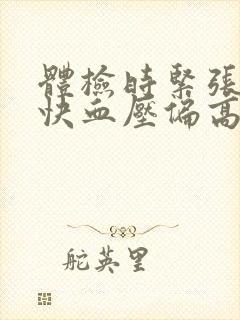 體檢時緊張
快血壓偏高
舵英里